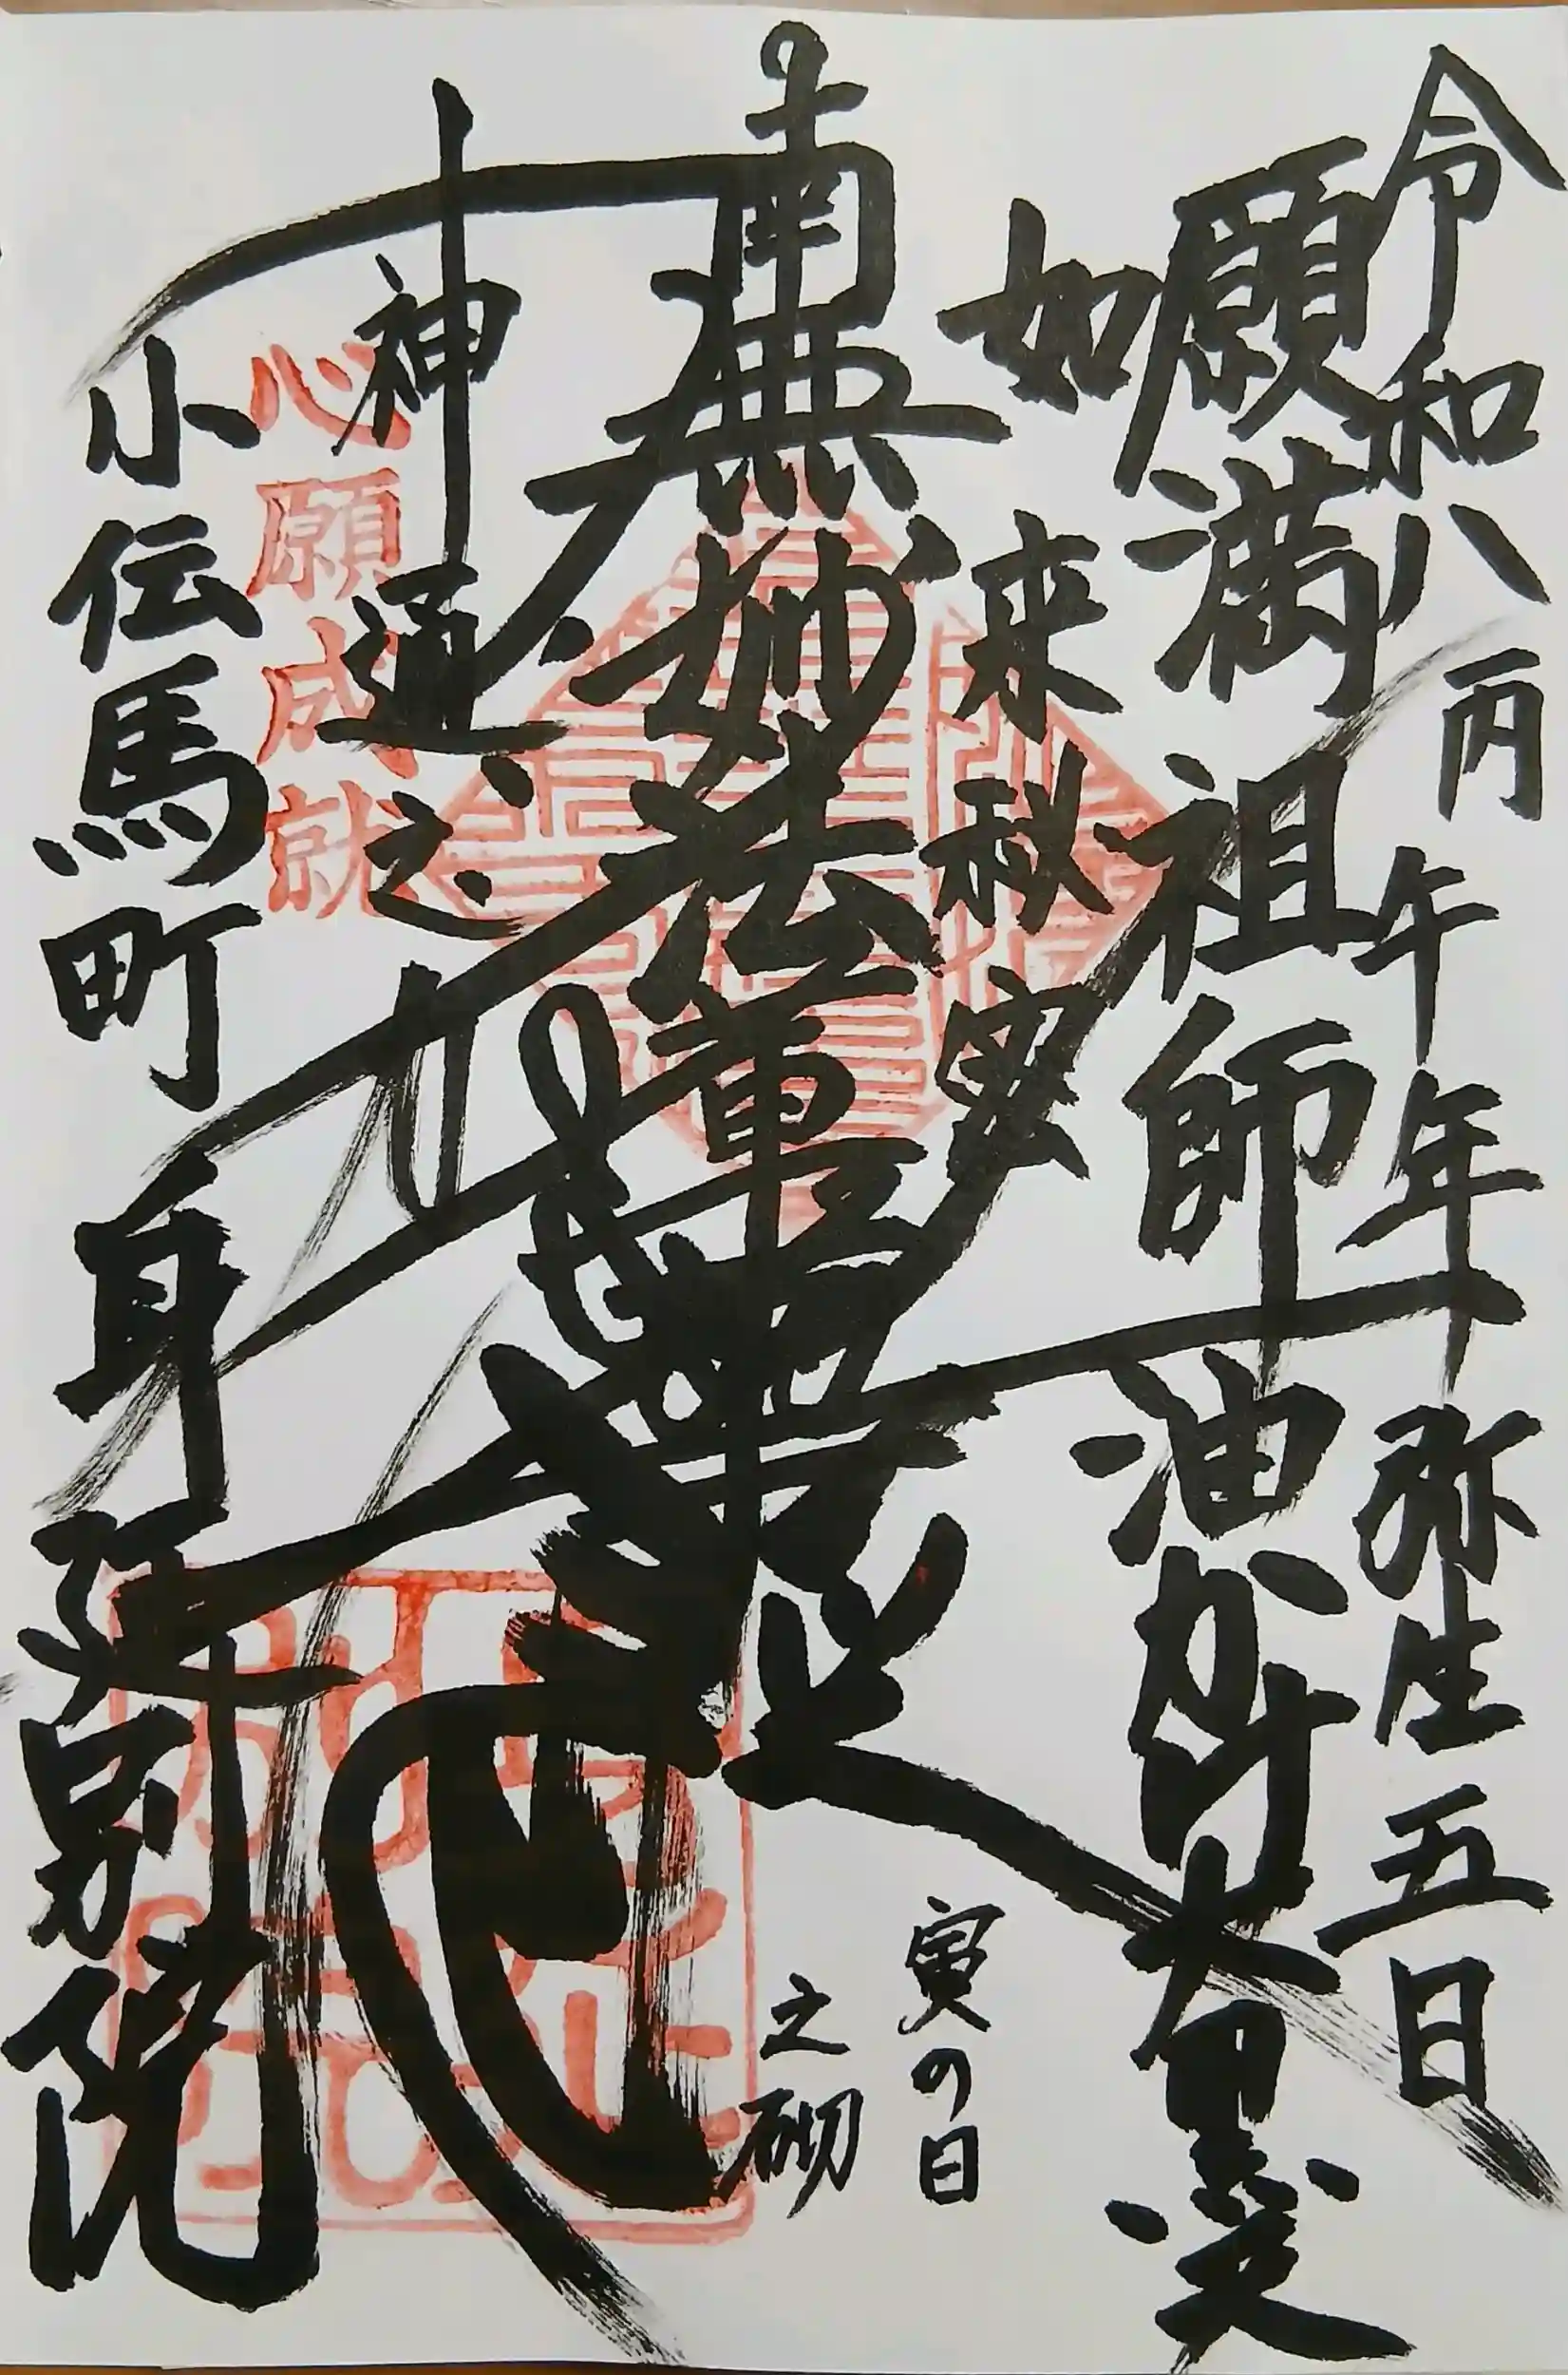 令和八丙午年弥生五日
願満祖師油かけ大黒天
如来秘密
寅の日
之砌
南無妙法蓮華経
神通之力
心願成就
小伝馬町身延別院